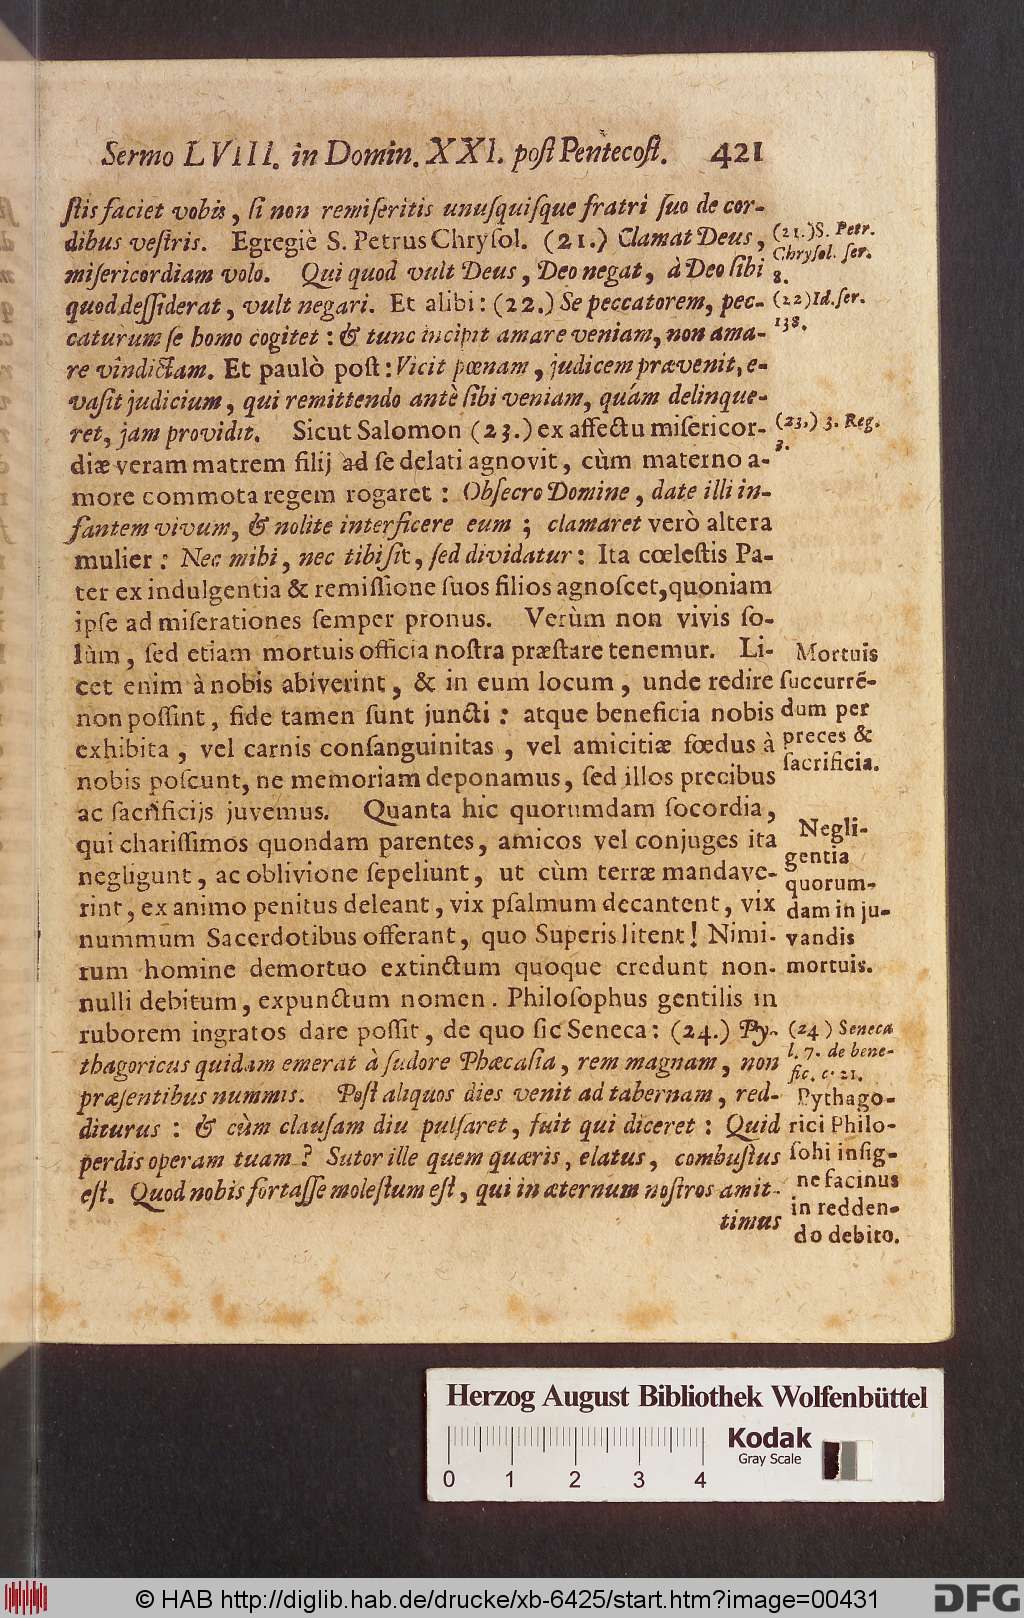 Sermo LVIII. in Domin. XXI. poſt Pentecoſt. 421
ſtis faciet vobis, ſi non remiſeritis unuſquiſque fratri ſuo de cor-
dibus veſtris. Egregiè S. Petrus Chryſol. (21.) Clamat Deus,
miſericordiam volo. Qui quod vult Deus, Deo negat, à Deo ſibi
quod deſſiderat, vult negari. Et alibi: (22.) Se peccatorem, pec-
caturum ſe homo cogitet: & tunc incipit amare veniam, non ama-
re vindictam. Et paulò poſt: Vicit pœnam, judicem prævenit, e-
vaſit judicium, qui remittendo antè ſibi veniam, quám delinque-
ret, jam providit. Sicut Salomon (23.) ex affectu miſericor-
diæ veram matrem filij ad ſe delati agnovit, cùm materno a-
more commota regem rogaret: Obſecro Domine, date illi in-
fantem vivum, & nolite interficere eum; clamaret verò altera
mulier: Nec mihi, nec tibi ſit, ſed dividatur: Ita cœleſtis Pa-
ter ex indulgentia & remiſſione ſuos filios agnoſcet, quoniam
ipſe ad miſerationes ſemper pronus. Verùm non vivis ſo-
lùm, ſed etiam mortuis officia noſtra præſtare tenemur. Li-
cet enim à nobis abiverint, & in eum locum, unde redire
non poſſint, fide tamen ſunt juncti: atque beneficia nobis
exhibita, vel carnis conſanguinitas, vel amicitiæ fœdus à
nobis poſcunt, ne memoriam deponamus, ſed illos precibus
ac ſacrificijs juvemus. Quanta hic quorumdam ſocordia,
qui chariſſimos quondam parentes, amicos vel conjuges ita
negligunt, ac oblivione ſepeliunt, ut cùm terræ mandave-
rint, ex animo penitus deleant, vix pſalmum decantent, vix
nummum Sacerdotibus offerant, quo Superis litent! Nimi-
rum homine demortuo extinctum quoque credunt non-
nulli debitum, expunctum nomen. Philoſophus gentilis in
ruborem ingratos dare poſſit, de quo ſic Seneca: (24.) Py-
thagoricus quidam emerat à ſudore Phæcaſia, rem magnam, non
præſentibus nummis. Poſt aliquos dies venit ad tabernam, red-
diturus: & cùm clauſam diu pulſaret, fuit qui diceret: Quid
perdis operam tuam? Sutor ille quem quæris, elatus, combuſtus
eſt. Quod nobis fortaſſe moleſtum eſt, qui in æternum noſtros amit-
timus
(21.) S. Petr.
Chryſol. ſer.
8.
(22) Id. ſer.
138.
(23.) 3. Reg.
3.
Mortuis
ſuccurrē-
dum per
preces &
ſacrificia.
Negli-
gentia
quorum-
dam in ju-
vandis
mortuis.
(24) Seneca
l. 7. de bene-
fic. c. 21.
Pythago-
rici Philo-
ſohi inſig-
ne facinus
in redden-
do debito.
Herzog August Bibliothek Wolfenbüttel
0 1 2 3 4
Kodak
Gray Scale
© HAB http://diglib.hab.de/drucke/xb-6425/start.htm?image=00431
DFG